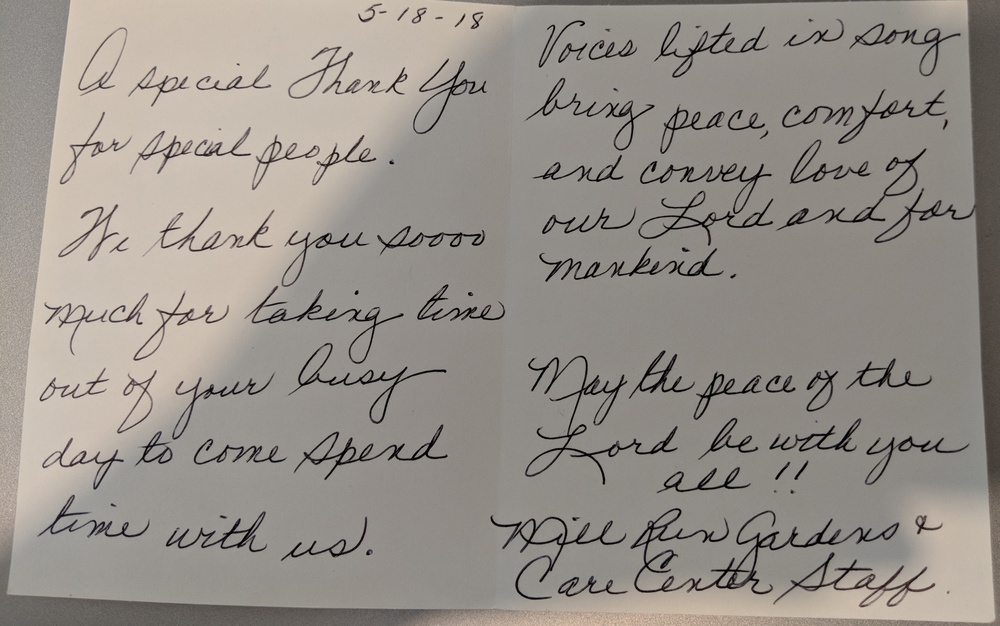 5-18-18
A special Thank You
for special people.
We thank you soooo
much for taking time
out of your busy
day to come spend
time with us.
Voices lifted in song
bring peace, comfort,
and convey love of
our Lord and for
mankind.
May the peace of the
Lord be with you
all !!
Mill Run Gardens &
Care Center Staff.